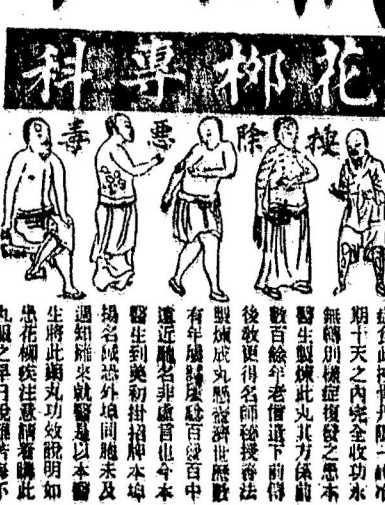 花柳專科
搜除惡毒
期十天之內完全收功永
無轉別樣症復發之患本
醫生製煉此丸其方係前
數百餘年老僧遺下前
後更得名師秘授善法
製煉成丸懸壺濟世歷數
有年屢試屢驗百發百中
遠近馳名非虛言也年本
醫生到美初掛招牌本埠
揚名誠恐外埠同胞未及
週知來就醫是以本醫
生將此丸功效說明如
患花柳疾注意請看購此
丸服之早日脫離苦海